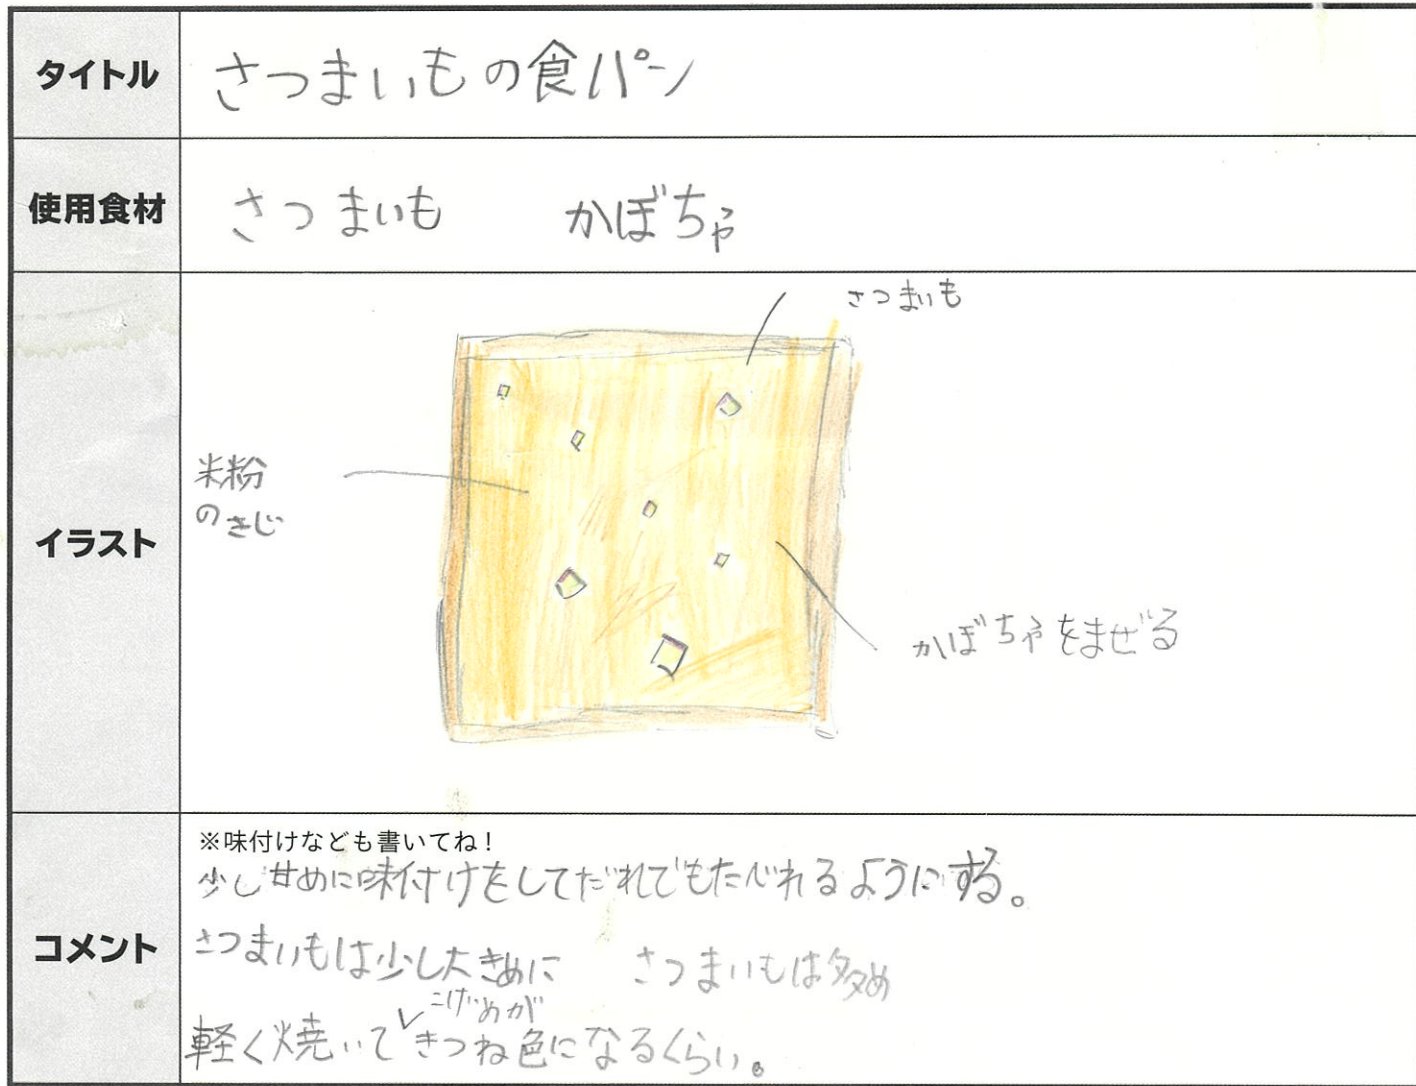 タイトル
さつまいもの食パン
使用食材
さつまいも かぼちゃ
イラスト
さつまいも
米粉
のきじ
かぼちゃをまぜる
コメント
※味付けなども書いてね!
少し甘めに味付けをしてだれでもたべれるようにする。
さつまいもは少し大きめに さつまいもは多め
こげめが
軽く焼いてきつね色になるくらい。